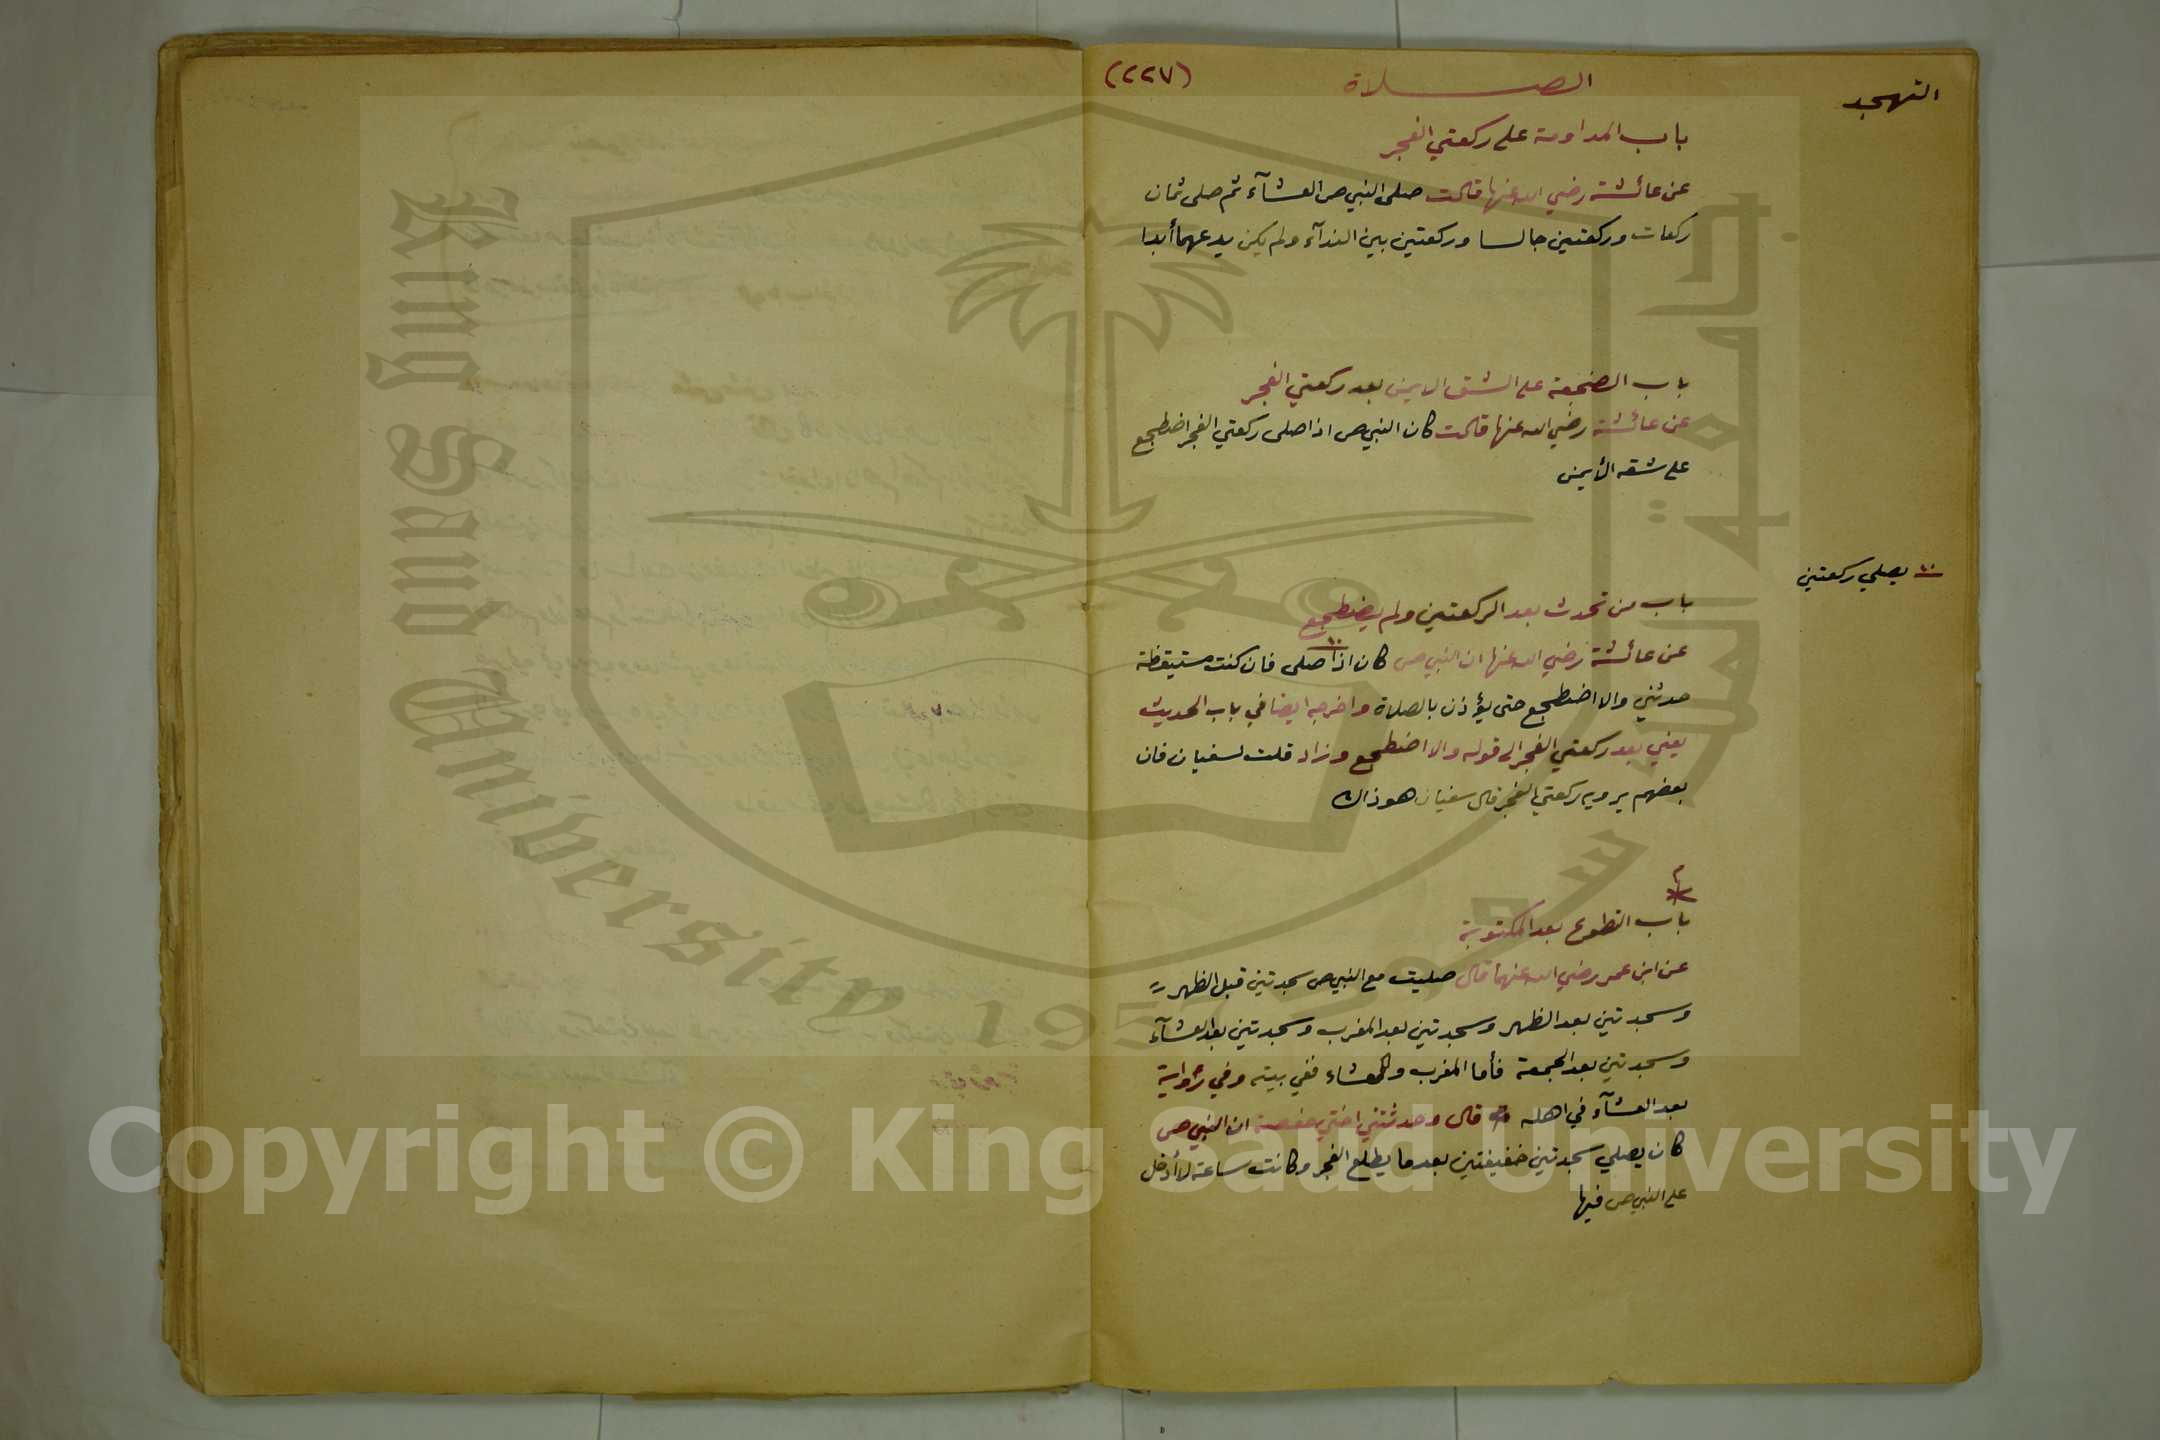 التهجد
الصلاة
(٢٢٧)
باب المداومة على ركعتي الفجر
عن عائشة رضي الله عنها قالت صلى النبي ص العشآء ثم صلى ثمان
ركعات وركعتين جالسا وركعتين بين الندآء ولم يكن يدعهما أبدا
باب الضجعة على الشق الايمن بعد ركعتي الفجر
عن عائشة رضي الله عنها قالت كان النبي ص اذا صلى ركعتي الفجر اضطجع
على شقه الأيمن
يصلي ركعتين
باب من تحدث بعد الركعتين ولم يضطجع
عن عائشة رضي الله عنها ان النبي ص كان اذا صلى فان كنت مستيقظة
حدثني والا اضطجع حتى يؤذن بالصلاة واخرجه ايضا في باب الحديث
يعني بعد ركعتي الفجر الى قوله والا اضطجع وزاد قلت لسفيان فان
بعضهم يرويه ركعتي الفجر قال سفيان هو ذاك
باب التطوع بعد المكتوبة
عن ابن عمر رضي الله عنهما قال صليت مع النبي ص سجدتين قبل الظهر
وسجدتين بعد الظهر وسجدتين بعد المغرب وسجدتين بعد العشآء
وسجدتين بعد الجمعة فأما المغرب والعشاء ففي بيته وفي رواية
بعد العشآء في اهله قال وحدثتني اختي حفصة ان النبي ص
كان يصلي سجدتين خفيفتين بعد ما يطلع الفجر وكانت ساعة لا أدخل
على النبي ص فيها
King Saud University
1957
Copyright © King Saud University